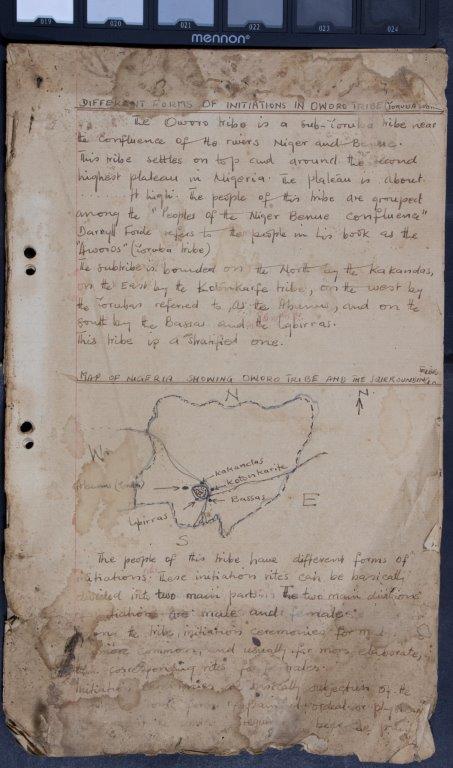 019 020 021 022 023 024
mennon
DIFFERENT FORMS OF INITIATIONS IN OWORO TRIBE (YORUBA
The Oworo tribe is a sub-Yoruba tribe near
the confluence of the rivers Niger and Benue.
This tribe settles on top and around the second
highest plateau in Nigeria. The plateau is about
ft high. The people of this tribe are grouped
among the "Peoples of the Niger Benue Confluence"
Daryll Forde refers to the people in his book as the
"Aworos" (Yoruba tribe)
The subtribe is bounded on the North by the Kakandas,
on the East by the Kotonkarife tribe, on the west by
the Yorubas referred to as the Abunu, and on the
south by the Bassas and the Igbirras.
This tribe is a stratified one.
MAP OF NIGERIA SHOWING OWORO TRIBE AND THE SURROUNDING
TRIBES
N
N
W
Kakandas
Kotonkarife
Bassas
E
Igbirras
S
The people of this tribe have different forms of
initiations. These initiation rites can be basically
divided into two main parts. The two main divisions
are male and female.
the tribe, initiation ceremonies for
more common, and usually far more elaborate,
than corresponding rites for females.
Initiation basically subjection of the
ordeal or